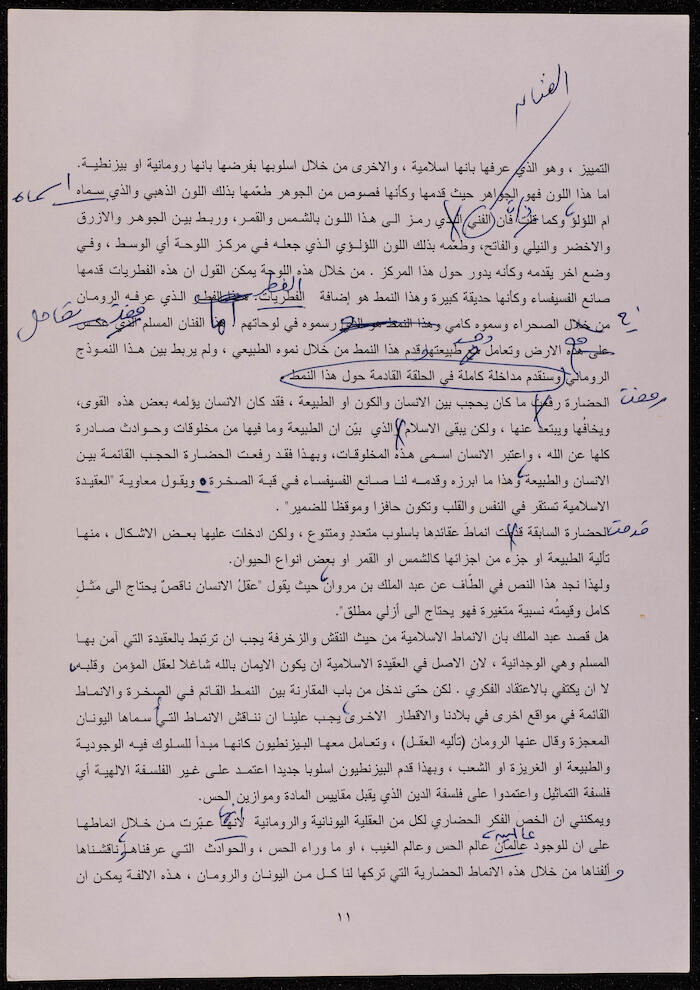 الفنان
التمييز ، وهو الذي عرفها بانها اسلامية ، والاخرى من خلال اسلوبها بفرضها بانها رومانية او بيزنطيـة.
اما هذا اللون فهو الجواهر حيث قدمها وكأنها فصوص من الجوهر طعّمها بذلك اللون الذهبي والذي سـماه اسماه
ام اللؤلؤ وكما قلت فأن الفني الذي رمز الى هـذا اللون بالشمس والقمر، وربط بيـن الجوهـر والازرق
والاخضر والنيلي والفاتح، وطعّمه بذلك اللون اللؤلـؤي الـذي جعلـه فـي مركـز اللوحـة أي الوسـط ، وفـي
وضع اخر يقدمه وكأنه يدور حول هـذا المركز . من خلال هـذه اللوحة يمكن القول ان هـذه الفطريات قدمها
صانع الفسيفساء وكأنها حديقة كبيرة وهذا النمط هو إضافة الفطريات. الـذي عرفـه الرومـان
من خلال الصحراء وسموه كامي وهـذا النمـط هـو الذي رسموه في لوحاتهم انها هنا الفنان المسلم الذي عكـس
على هذه الارض وتعامل مع طبيعتها وقدم هـذا النمـط من خلال نموه الطبيعي ، ولم يربط بين هـذا النمـوذج
الروماني وسنقدم مداخلة كاملة في الحلقة القادمة حول هذا النمط
الحضارة رفعت ما كان يحجب بين الانسان والكون او الطبيعة ، فقد كان الانسان يؤلمه بعض هذه القوى، رفعت
ويخافها ويبتعد عنها ، ولكن يبقى الاسلام الذي بيّن ان الطبيعة وما فيها من مخلوقات وحـوادث صـادرة
كلها عن الله ، واعتبر الانسان اسـمى هـذه المخلوقـات، وبهـذا فقـد رفعـت الحضارة الحجـب القائمـة بيـن
الانسان والطبيعة وهذا ما ابرزه وقدمـه لنـا صـانع الفسيفسـاء فـي قبـة الصخـرة ويقـول معاويـة "العقيـدة
الاسلامية تستقر في النفس والقلب وتكون حافزا وموقظا للضمير" .
الحضارة السابقة قدمت انماط عقائدها باسلوب متعدد ومتنوع ، ولكن ادخلت عليها بعـض الاشـكال ، منهـا قدمت
تألية الطبيعة او جزء من اجزائها كالشمس او القمر او بعض انواع الحيوان.
ولهذا نجد هذا النص في الطّاف عن عبد الملك بن مروان حيث يقول "عقلُ الانسان ناقصٌ يحتاج الى مَثـلٍ
كامل وقيمتُه نسبية متغيرة فهو يحتاج الى أزلي مطلق".
هل قصد عبد الملك بان الانماط الاسلامية من حيث النقش والزخرفة يجب ان ترتبط بالعقيدة التي آمن بهـا
المسلم وهي الوجدانية ، لان الاصل في العقيدة الاسلامية ان يكون الايمان بالله شاغلا لعقل المؤمن وقلبـه،
لا ان يكتفي بالاعتقاد الفكري . لكن حتى ندخل من باب المقارنة بين النمـط القـائم فـي الصخـرة والانماط
القائمة في مواقع اخرى في بلادنا والاقطار الاخرى يجب علينا ان ننـاقش الانمـاط التـي أسماها اليونـان
المعجزة وقال عنها الرومان (تأليه العقل) ، وتعامل معهـا البـيزنطيون كانهـا مبـدأ للسـلوك فيـه الوجوديـة
والطبيعة او الغريزة او الشعب ، وبهذا قدم البيزنطيون اسلوبا جديدا اعتمـد علـى غـير الفلسـفة الالهيـة أي
فلسفة التماثيل واعتمدوا على فلسفة الدين الذي يقبل مقاييس المادة وموازين الحس.
ويمكنني ان الخص الفكر الحضاري لكل من العقلية اليونانية والرومانية لانهـا انها عبّرت مـن خـلال انماطهـا
على ان للوجود عالمان عالمين عالم الحس وعالم الغيب ، او ما وراء الحس ، والحوادث التـي عرفناهـا وناقشـناها
وألفناها من خلال هذه الانماط الحضارية التي تركها لنا كـل مـن اليونـان والرومـان ، هـذه الالفة يمكـن ان
١١